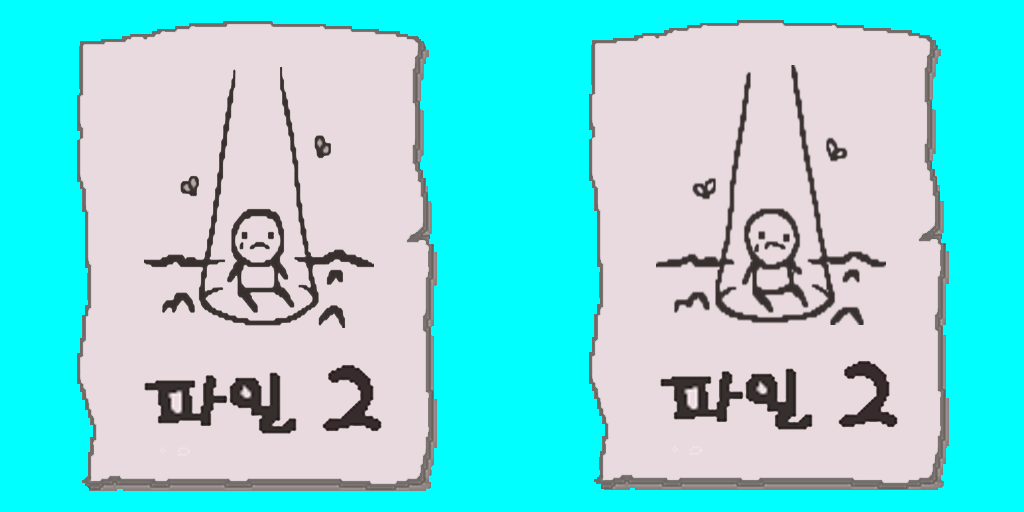 파일 2 파일 2